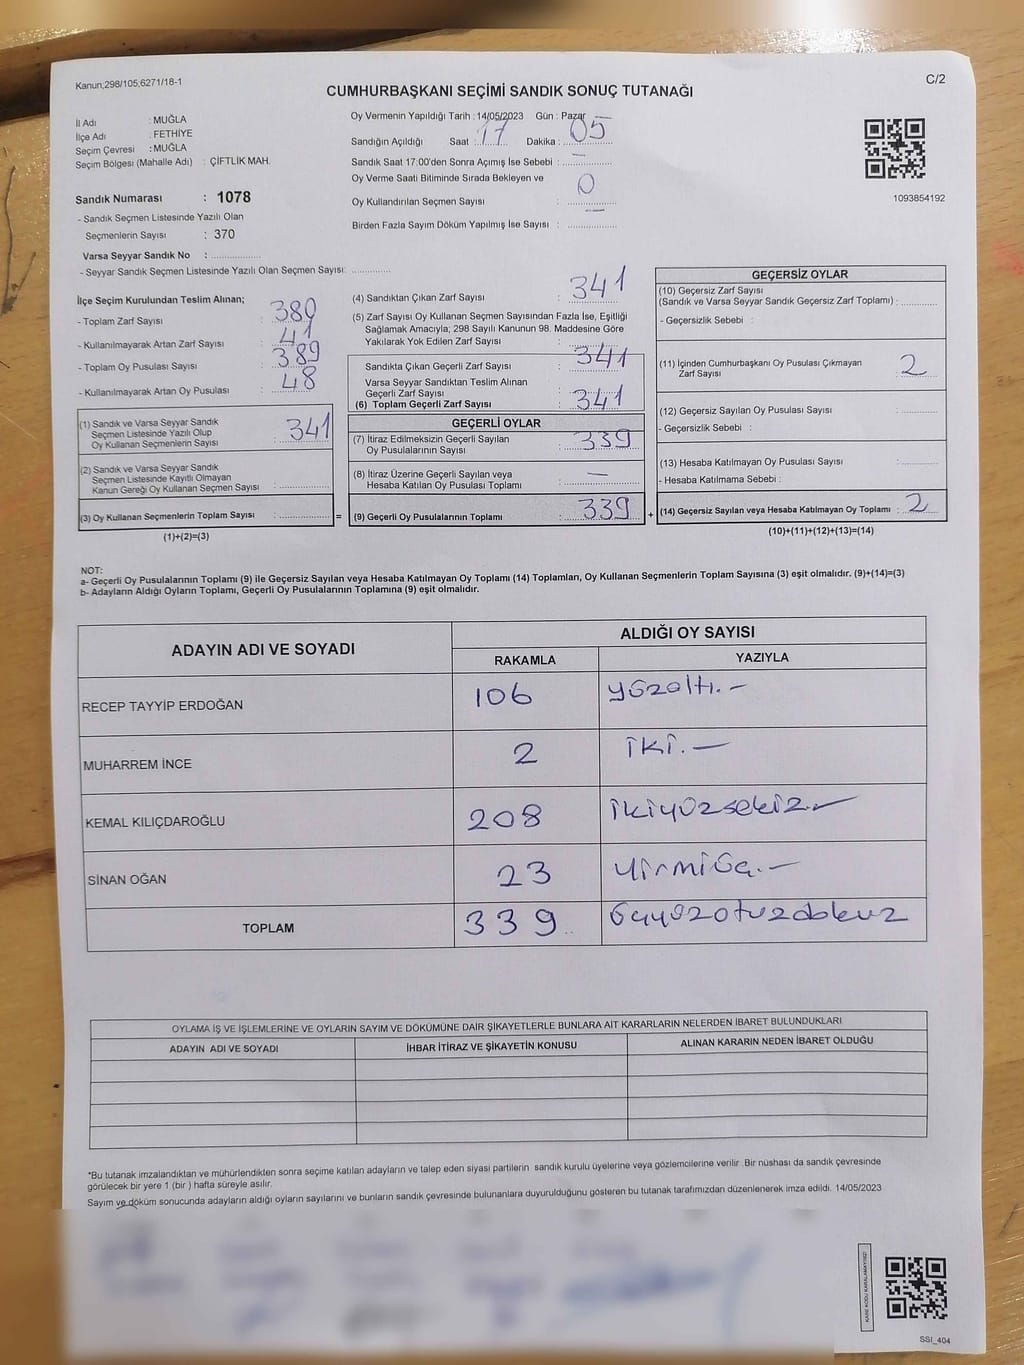 Kanun;298/105;6271/18-1
C/2
CUMHURBAŞKANI SEÇİMİ SANDIK SONUÇ TUTANAĞI
İl Adı : MUĞLA
İlçe Adı : FETHİYE
Seçim Çevresi : MUĞLA
Seçim Bölgesi (Mahalle Adı) : ÇİFTLİK MAH.
Sandık Numarası : 1078
- Sandık Seçmen Listesinde Yazılı Olan
Seçmenlerin Sayısı : 370
Varsa Seyyar Sandık No :
- Seyyar Sandık Seçmen Listesinde Yazılı Olan Seçmen Sayısı:
Oy Vermenin Yapıldığı Tarih : 14/05/2023 Gün : Pazar
Sandığın Açıldığı Saat : 17 Dakika : 05
Sandık Saat 17:00'den Sonra Açımış İse Sebebi : —
Oy Verme Saati Bitiminde Sırada Bekleyen ve
Oy Kullandırılan Seçmen Sayısı : 0
Birden Fazla Sayım Döküm Yapılmış İse Sayısı : —
1093854192
İlçe Seçim Kurulundan Teslim Alınan;
- Toplam Zarf Sayısı : 380
- Kullanılmayarak Artan Zarf Sayısı : 41
- Toplam Oy Pusulası Sayısı : 389
- Kullanılmayarak Artan Oy Pusulası : 48
(1) Sandık ve Varsa Seyyar Sandık
Seçmen Listesinde Yazılı Olup
Oy Kullanan Seçmenlerin Sayısı : 341
(2) Sandık ve Varsa Seyyar Sandık
Seçmen Listesinde Kayıtlı Olmayan
Kanun Gereği Oy Kullanan Seçmen Sayısı :
(3) Oy Kullanan Seçmenlerin Toplam Sayısı : =
(1)+(2)=(3)
(4) Sandıktan Çıkan Zarf Sayısı : 341
(5) Zarf Sayısı Oy Kullanan Seçmen Sayısından Fazla İse, Eşitliği
Sağlamak Amacıyla; 298 Sayılı Kanunun 98. Maddesine Göre
Yakılarak Yok Edilen Zarf Sayısı :
Sandıkta Çıkan Geçerli Zarf Sayısı : 341
Varsa Seyyar Sandıktan Teslim Alınan
Geçerli Zarf Sayısı :
(6) Toplam Geçerli Zarf Sayısı : 341
GEÇERLİ OYLAR
(7) İtiraz Edilmeksizin Geçerli Sayılan
Oy Pusulalarının Sayısı : 339
(8) İtiraz Üzerine Geçerli Sayılan veya
Hesaba Katılan Oy Pusulası Toplamı : —
(9) Geçerli Oy Pusulalarının Toplamı : 339 +
GEÇERSİZ OYLAR
(10) Geçersiz Zarf Sayısı
(Sandık ve Varsa Seyyar Sandık Geçersiz Zarf Toplamı) :
- Geçersizlik Sebebi :
(11) İçinden Cumhurbaşkanı Oy Pusulası Çıkmayan
Zarf Sayısı : 2
(12) Geçersiz Sayılan Oy Pusulası Sayısı :
- Geçersizlik Sebebi :
(13) Hesaba Katılmayan Oy Pusulası Sayısı :
- Hesaba Katılmama Sebebi :
(14) Geçersiz Sayılan veya Hesaba Katılmayan Oy Toplamı : 2
(10)+(11)+(12)+(13)=(14)
NOT:
a- Geçerli Oy Pusulalarının Toplamı (9) ile Geçersiz Sayılan veya Hesaba Katılmayan Oy Toplamı (14) Toplamları, Oy Kullanan Seçmenlerin Toplam Sayısına (3) eşit olmalıdır. (9)+(14)=(3)
b- Adayların Aldığı Oyların Toplamı, Geçerli Oy Pusulalarının Toplamına (9) eşit olmalıdır.
ADAYIN ADI VE SOYADI
ALDIĞI OY SAYISI
RAKAMLA YAZIYLA
RECEP TAYYİP ERDOĞAN 106 yüzaltı.-
MUHARREM İNCE 2 iki.-
KEMAL KILIÇDAROĞLU 208 ikiyüzsekiz-
SİNAN OĞAN 23 yirmiüç.-
TOPLAM 339 üçyüzotuzdokuz
OYLAMA İŞ VE İŞLEMLERİNE VE OYLARIN SAYIM VE DÖKÜMÜNE DAİR ŞİKAYETLERLE BUNLARA AİT KARARLARIN NELERDEN İBARET BULUNDUKLARI
ADAYIN ADI VE SOYADI İHBAR İTİRAZ VE ŞİKAYETİN KONUSU ALINAN KARARIN NEDEN İBARET OLDUĞU
*Bu tutanak imzalandıktan ve mühürlendikten sonra seçime katılan adayların ve talep eden siyasi partilerin sandık kurulu üyelerine veya gözlemcilerine verilir .Bir nüshası da sandık çevresinde
görülecek bir yere 1 (bir ) hafta süreyle asılır.
Sayım ve döküm sonucunda adayların aldığı oyların sayılarını ve bunların sandık çevresinde bulunanlara duyurulduğunu gösteren bu tutanak tarafımızdan düzenlenerek imza edildi. 14/05/2023
KARE KODU KARALAMAYINIZ!
SSI_404